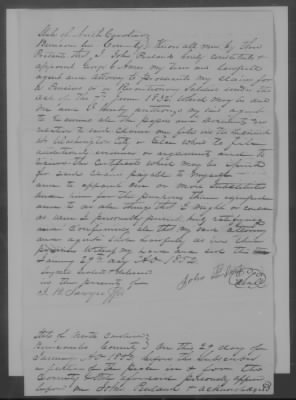 State of North Carolina
Buncombe County Know all men by these
Presents that I John Roland hereby constitute &
appoint George C Ames my true and lawful
agent and attorney to prosecute my claim for
a Pension as a Revolutionary Soldier under the
Act of the 7th June 1832 which may be due
me and I hereby authorize my said agent
to examine all the papers and documents in
relation to said claim on file in the Department
at Washington City or else where to file
additional evidence or arguments and to
receive the Certificate which may be issued
for said claim payable to myself
and to appoint one or more substitutes
under him for the purposes therein expressed
and to do all things that I might or could
do were I personally present hereby ratifying
and confirming all that my said attorney
and agent shall lawfully do in the
premises Witness my hand and seal this
January 29th day AD 1852
Signed Sealed & delivered
in the presents of
John Roland
Seal
State of North Carolina
Buncombe County On this 29 day of
January AD 1852 before the subscriber
a Justice of the peace in & for the
County & State aforesaid personally appear
John Roland & acknowledged